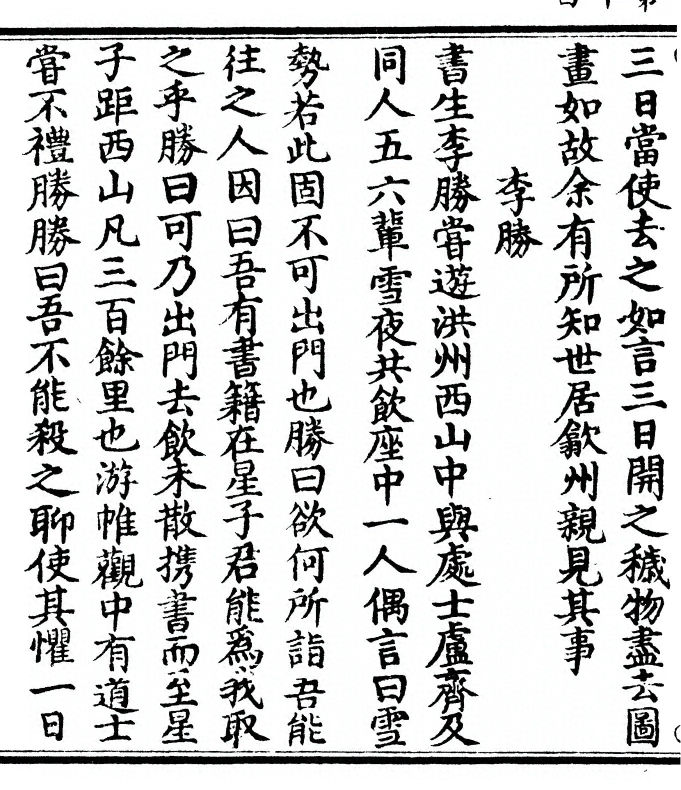 三日當使去之如言三日開之穢物盡去圖
畫如故余有所知世居歙州親見其事
李勝
書生李勝甞遊洪州西山中與處士盧齊及
同人五六輩雪夜共飲座中一人偶言曰雪
勢若此固不可出門也勝曰欲何所詣吾能
往之人因曰吾有書籍在星子君能爲我取
之乎勝曰可乃出門去飲未散携書而至星
子距西山凡三百餘里也游帷觀中有道士
甞不禮勝勝曰吾不能殺之聊使其懼一日